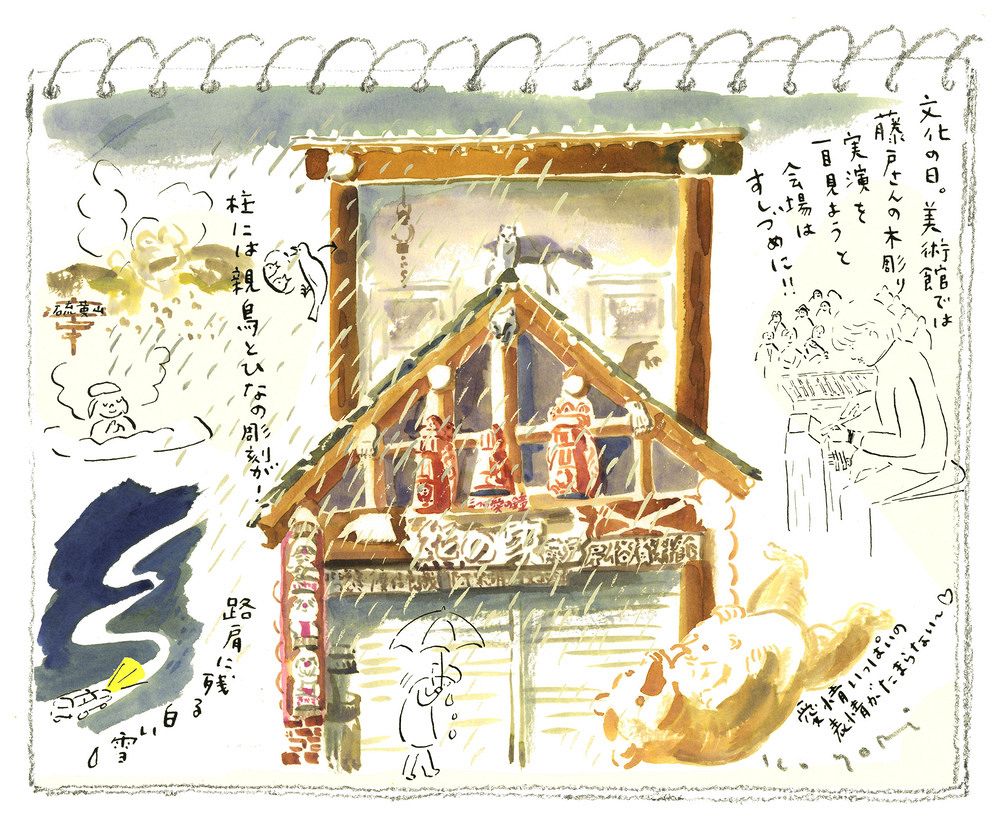 文化の日。美術館では
藤戸さんの木彫り
実演を
一目見ようと
会場は
すしづめに!!
柱には親鳥とひなの彫刻が!
硫黄山
熊の家
路肩に残る
白い雪
愛情いっぱいの
表情がたまらない〜♡